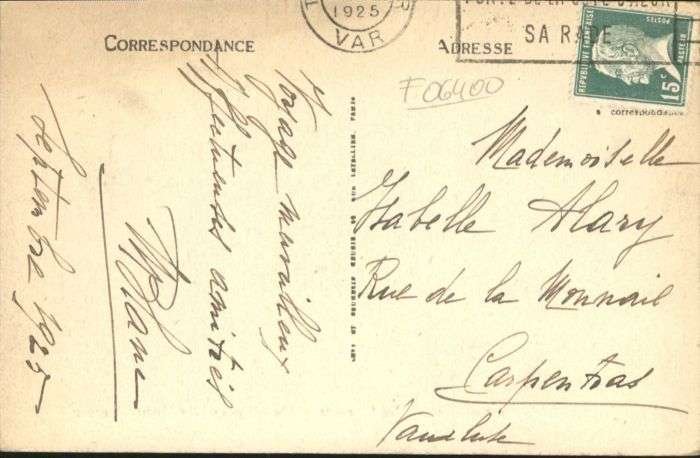 1925
VAR
SA RADE
REPUBLIQUE FRANÇAISE
POSTES
15c
CORRESPONDANCE
ADRESSE
F06400
correspondance
Voyage merveilleux
affectueuses amitiés
septembre 1925
Mademoiselle
Isabelle Alary
Rue de la Monnaie
Carpentras
Vaucluse